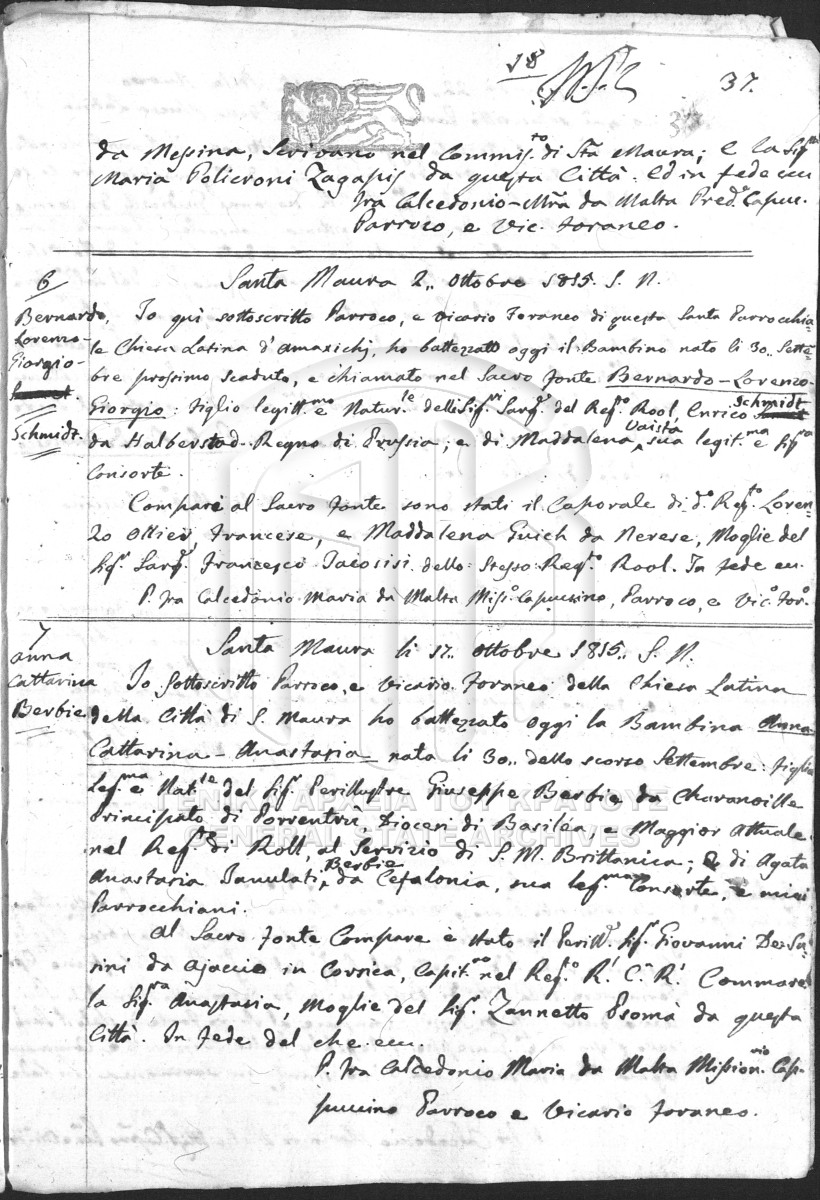 18
37.
da Messina, Scrivano nel Commis.to di Sta Maura; e la Sig.ra
Maria Policroni Zagapis da questa Città. Ed in fede
fra Calcedonio Mra da Malta Pred.e Capuc.
Parroco, e Vic. foraneo.
Santa Maura 2,, Ottobre 1815. S. N.
6
Bernardo,
Lorenzo-
Giorgio-
Schmidt.
Io qui sottoscritto Parroco, e Vicario Foraneo di questa Santa Parrocchia-
le Chiesa Latina d'Amaxichj, ho battezzato oggi il Bambino nato li 30,, Sette-
bre prossimo scaduto, e chiamato nel Sacro fonte Bernardo-Lorenzo-
Giorgio: figlio legitt.mo e Natur.le delli Sig.ri Sarg.e del Reg.to Rool, Enrico Schmidt
da Halberstad Regno di Prussia; e di Maddalena Vaista sua legit.ma e Sig.ra
Consorte.
Compari al Sacro fonte sono stati il Caporale di d.o Reg.to Loren-
zo Ollier, Francese, e Maddalena Guich da Nerese, Moglie del
Sig.r Sarg.e Francesco Jacosisi dello Stesso Reg.to Rool. In fede
P. fra Calcedonio Maria da Malta Miss.o Capuccino, Parroco, e Vic.o For.o
7
Anna
Cattarina
Berbie
Santa Maura li 17,, Ottobre 1815,, S. N.
Io Sottoscritto Parroco, e Vicario Foraneo della Chiesa Latina
della Città di S. Maura ho battezzato oggi la Bambina Anna-
Cattarina-Anastasia nata li 30,, dello scorso Settembre: figlia
Leg.ma e Nat.le del Sig.r Perillustre Giuseppe Berbie da Charanoille
Principato di Porrentrù, Diocesi di Basiléa, e Maggior Attuale
nel Reg.to di Roll, al Servizio di S. M. Brittanica; e di Agata
Anastasia Panulati, Berbie da Cefalonia, sua leg.ma Consorte, e miei
Parrocchiani.
Al Sacro fonte Compare è stato il Perill.e Sig.r Giovanni De Su-
sini da Ajaccio in Corsica, Capit.no nel Reg.o R. C. R. Commare
la Sig.ra Anastasia, Moglie del Sig.r Zannetto Psomà da questa
Città. In fede del che
P. fra Calcedonio Maria da Malta Mission.rio Cap-
puccino Parroco e Vicario foraneo.
ΓΕΝΙΚΑ ΑΡΧΕΙΑ ΤΟΥ ΚΡΑΤΟΥΣ
GENERAL STATE ARCHIVES